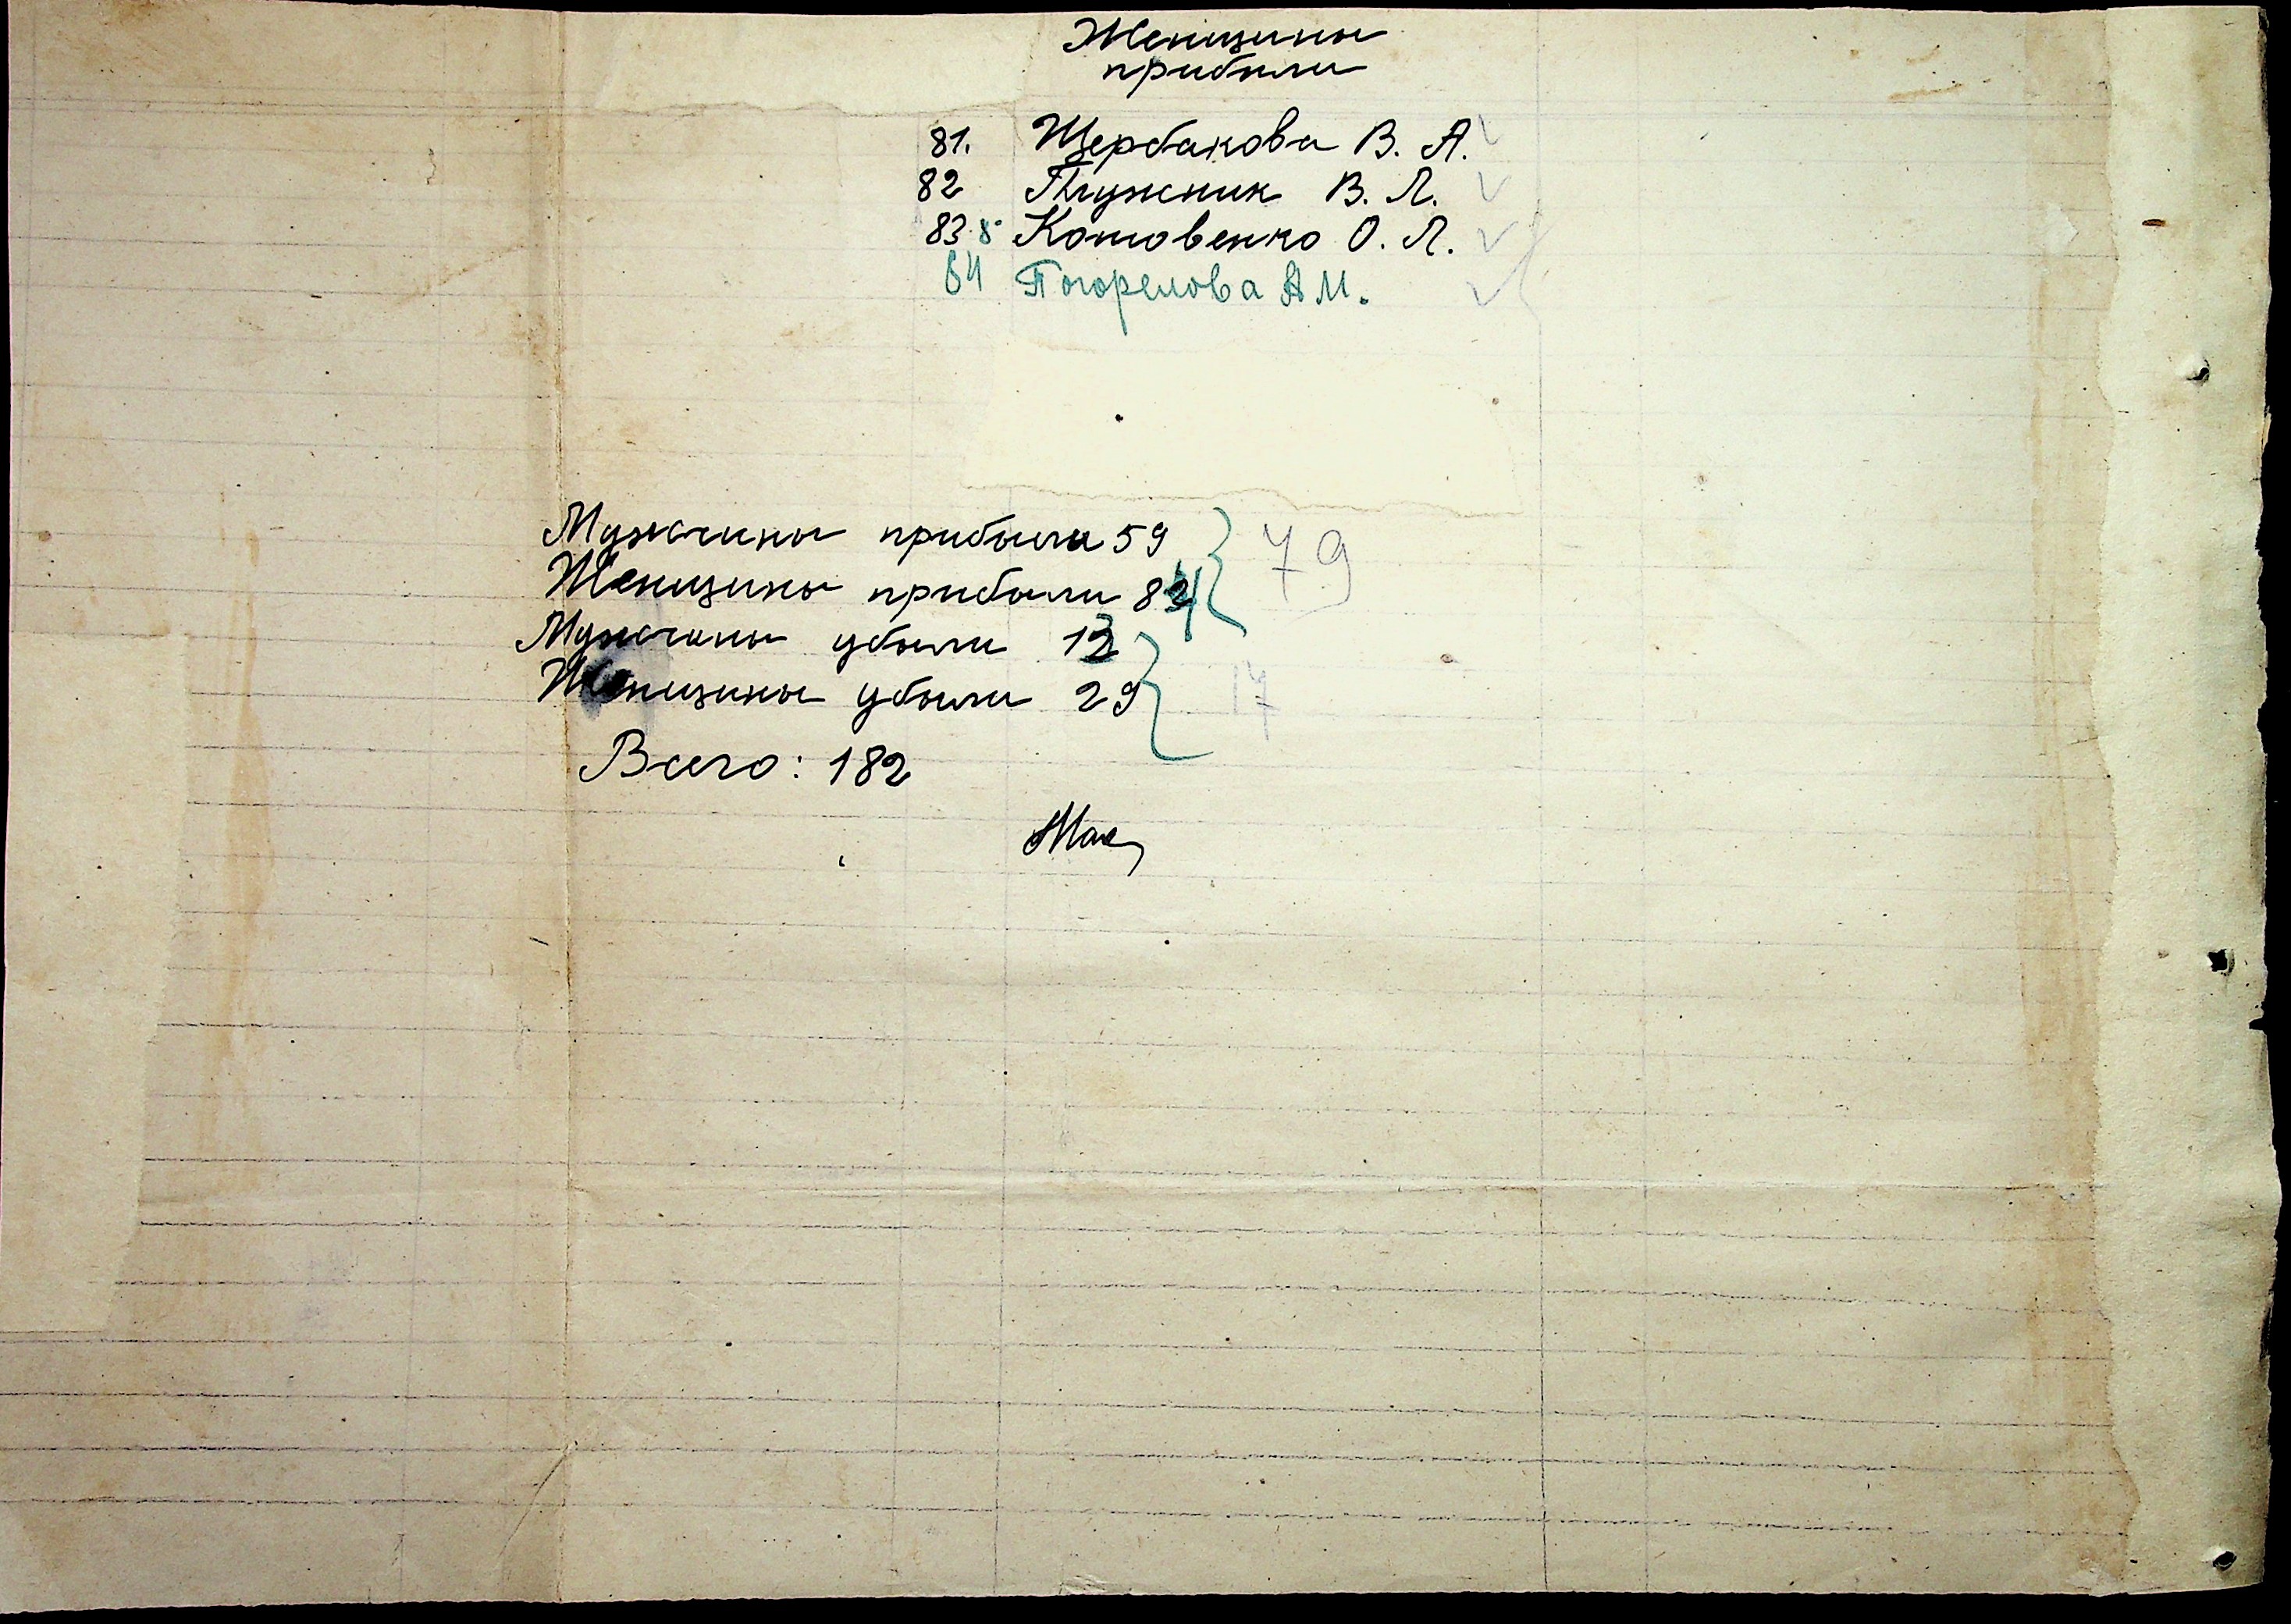 Женщины
прибыли
81. Щербакова В. А.
82 Плужник В. Л.
83. Котовенко О. Л.
84 Погорелова А М.
Мужчины прибыли 59
Женщины прибыли 84
79
Мужчины убыли 12
Женщины убыли 29
17
Всего: 182